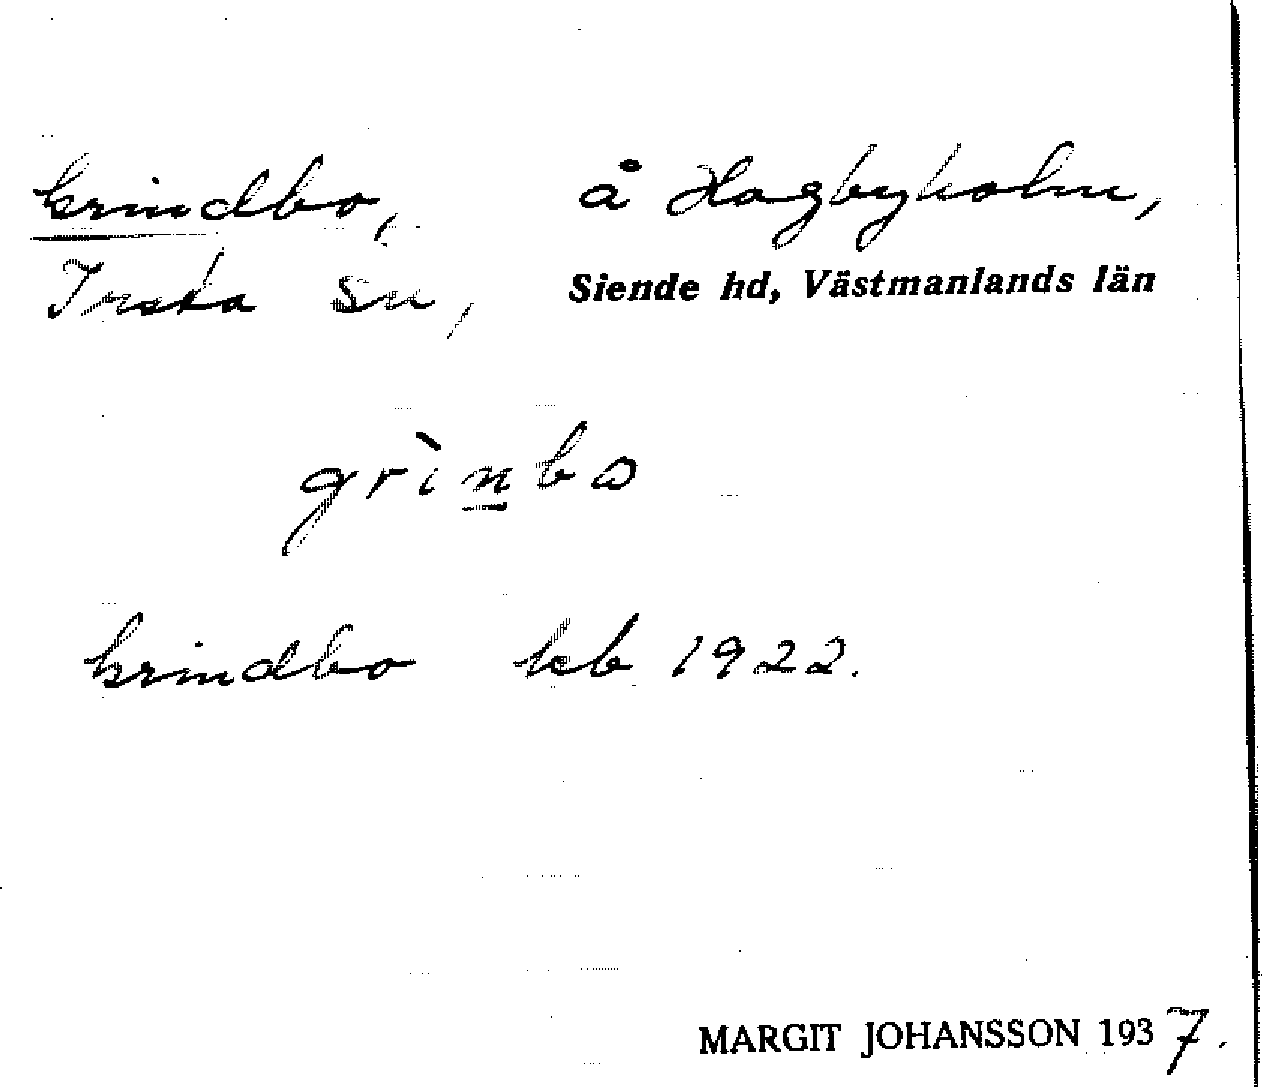 Grindbo, å Hagbyholm,
Irsta sn, Siende hd, Västmanlands län
grìn̲bo
Grindbo kb 1922.
MARGIT JOHANSSON 1937.